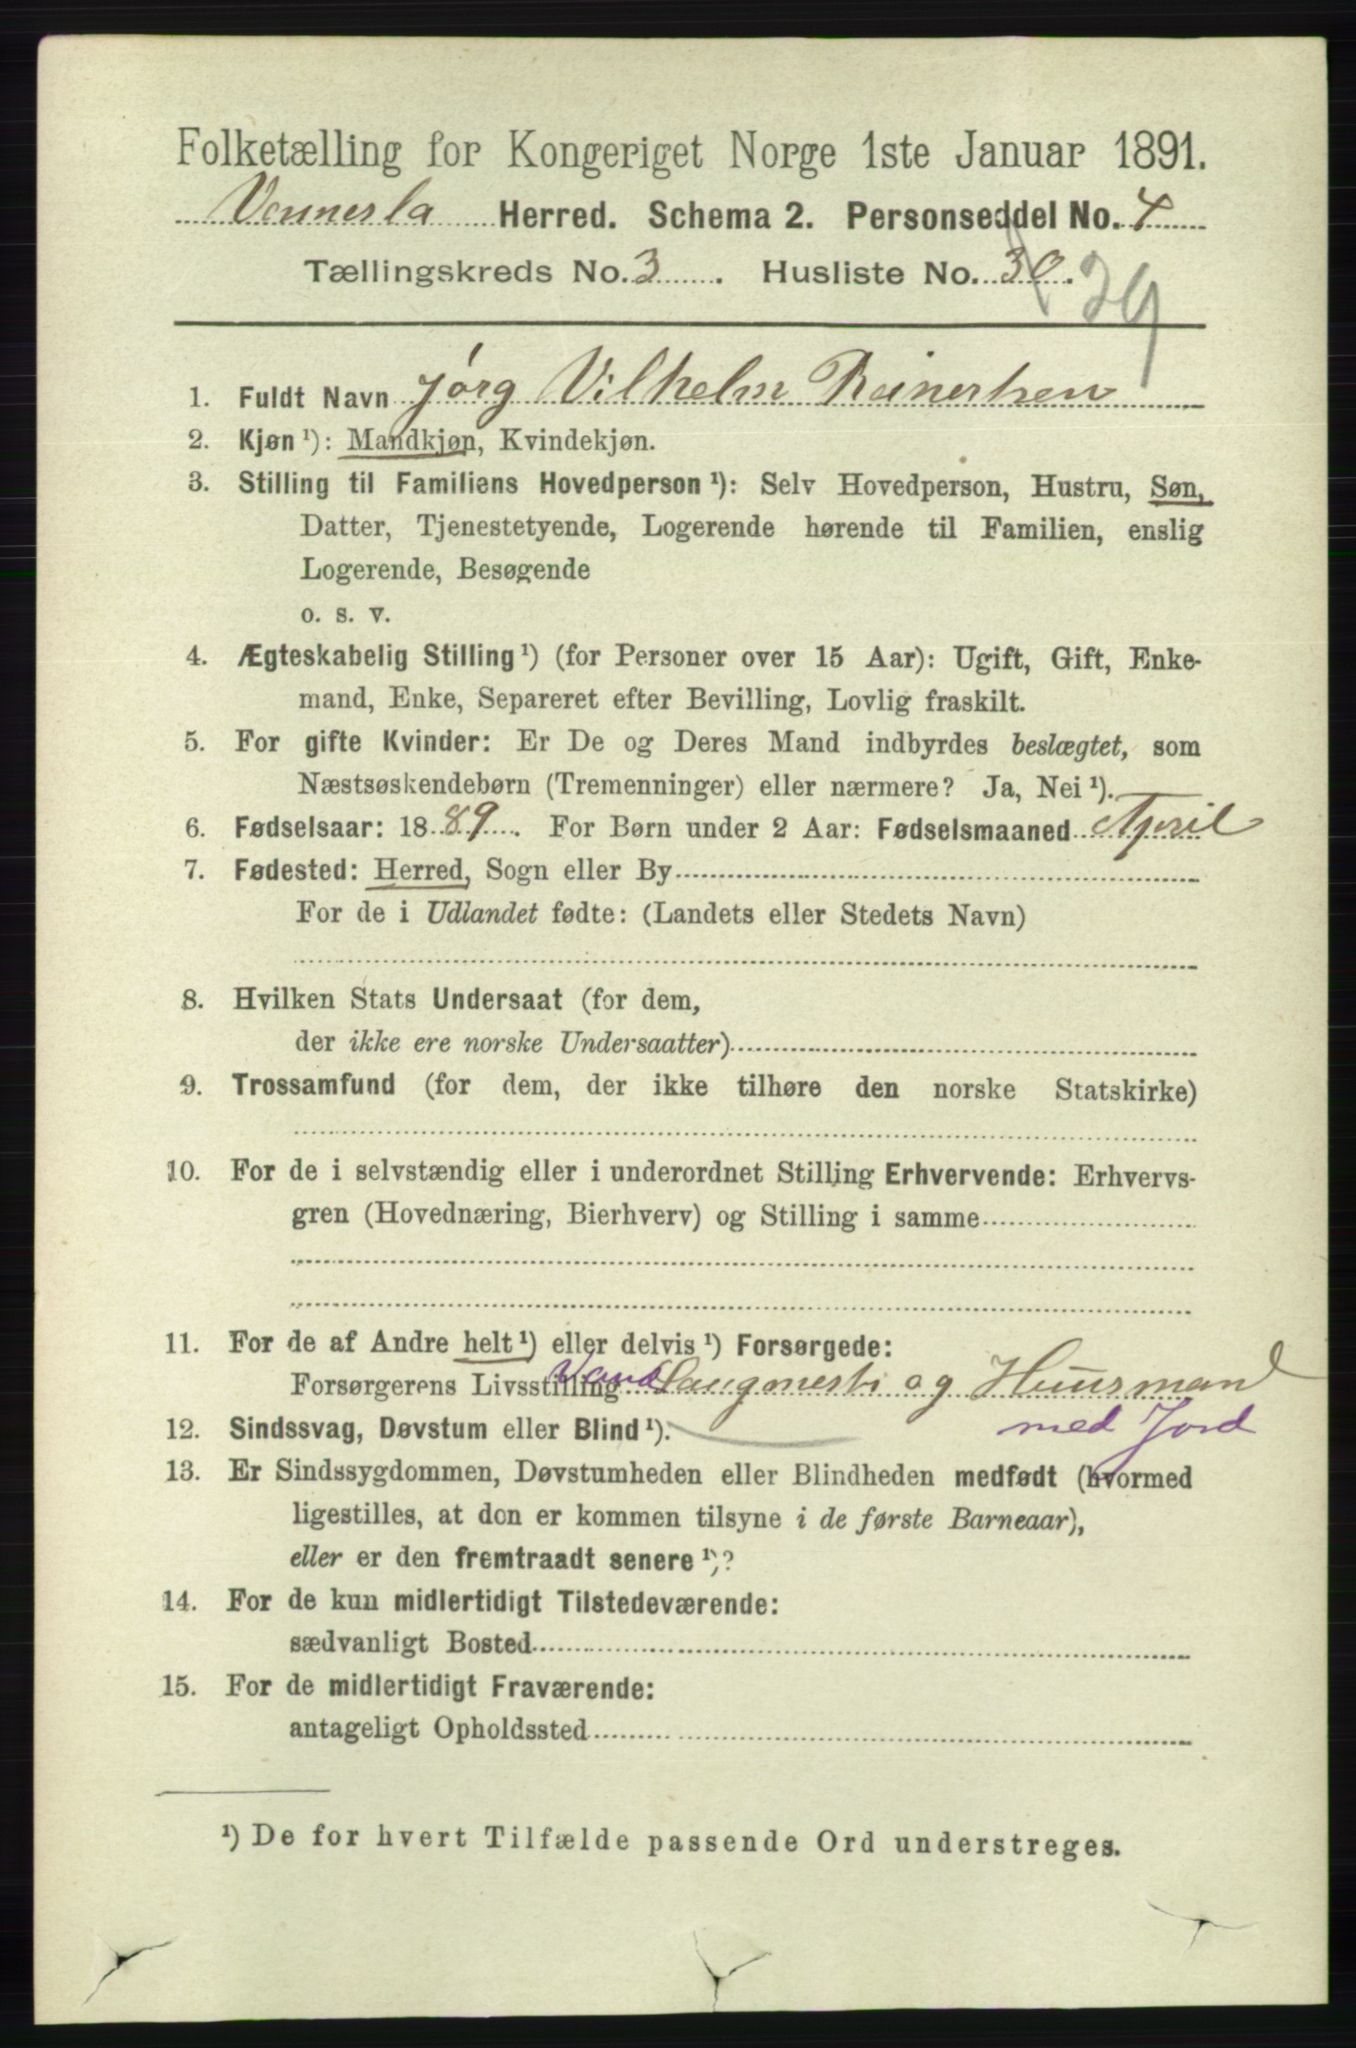 Folketælling for Kongeriget Norge 1ste Januar 1891.
Vennesla Herred. Schema 2. Personseddel No. 4
Tællingskreds No. 3. Husliste No. 30. 29
1. Fuldt Navn Jørg Vilhelm Reinertsen
2. Kjøn ¹): Mandkjøn, Kvindekjøn.
3. Stilling til Familiens Hovedperson ¹): Selv Hovedperson, Hustru, Søn,
Datter, Tjenestetyende, Logerende hørende til Familien, enslig
Logerende, Besøgende
o. s. v.
4. Ægteskabelig Stilling ¹) (for Personer over 15 Aar): Ugift, Gift, Enke-
mand, Enke, Separeret efter Bevilling, Lovlig fraskilt.
5. For gifte Kvinder: Er De og Deres Mand indbyrdes beslægtet, som
Næstsøskendebørn (Tremenninger) eller nærmere? Ja, Nei ¹).
6. Fødselsaar: 1889. For Børn under 2 Aar: Fødselsmaaned April
7. Fødested: Herred, Sogn eller By
For de i Udlandet fødte: (Landets eller Stedets Navn)
8. Hvilken Stats Undersaat (for dem,
der ikke ere norske Undersaatter)
9. Trossamfund (for dem, der ikke tilhøre den norske Statskirke)
10. For de i selvstændig eller i underordnet Stilling Erhvervende: Erhvervs-
gren (Hovednæring, Bierhverv) og Stilling i samme
11. For de af Andre helt ¹) eller delvis ¹) Forsørgede:
Forsørgerens Livsstilling Vand Saugmester og Huusmand
med Jord
12. Sindssvag, Døvstum eller Blind ¹).
13. Er Sindssygdommen, Døvstumheden eller Blindheden medfødt (hvormed
ligestilles, at don er kommen tilsyne i de første Barneaar),
eller er den fremtraadt senere ¹)?
14. For de kun midlertidigt Tilstedeværende:
sædvanligt Bosted
15. For de midlertidigt Fraværende:
antageligt Opholdssted
¹) De for hvert Tilfælde passende Ord understreges.